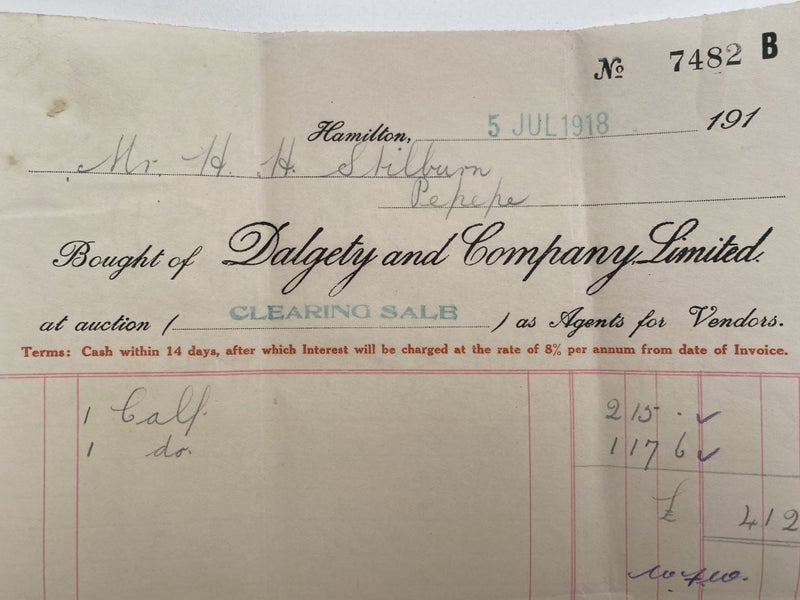 No 7482 B
Hamilton, 5 JUL 1918 191
Mr. H. H. Stilburn
Pepepe
Bought of Dalgety and Company, Limited.
at auction ( CLEARING SALE ) as Agents for Vendors.
Terms: Cash within 14 days, after which Interest will be charged at the rate of 8% per annum from date of Invoice.
1 Calf. 2 15 -
1 do. 1 17 6
£ 4 12